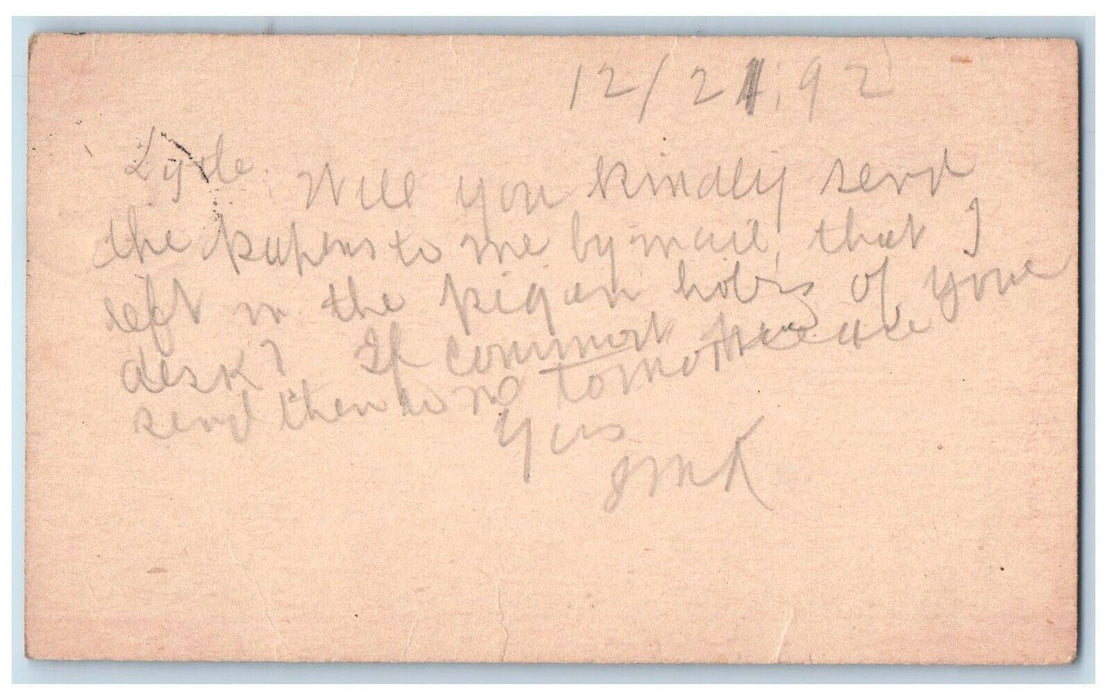 12/21, 92
Lysle: Will you kindly send
the papers to me by mail, that I
left in the pigeon holes of your
desk? If convenient please
send them to me tomorrow
Yrs
JMK